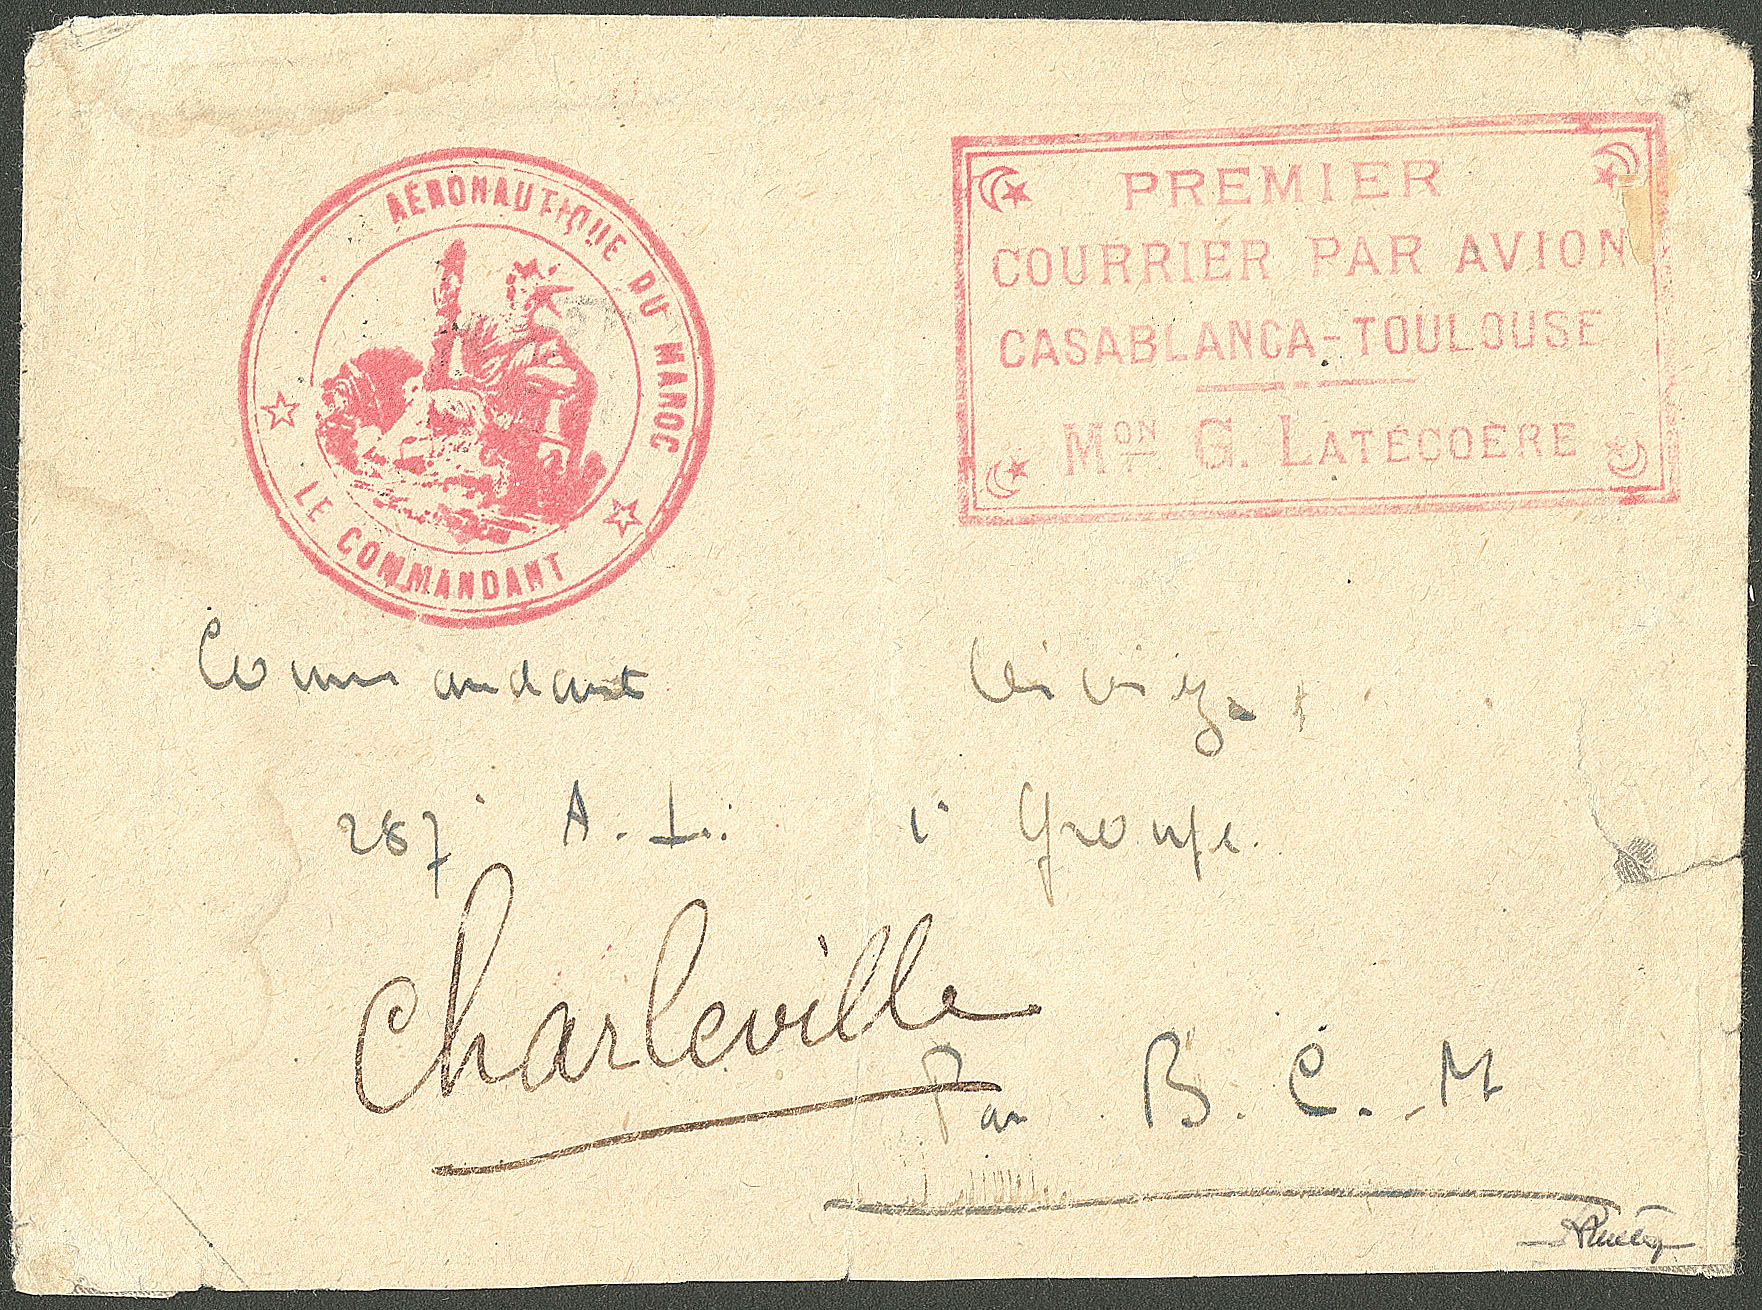 AÉRONAUTIQUE DU MAROC
LE COMMANDANT
PREMIER
COURRIER PAR AVION
CASABLANCA-TOULOUSE
MON G. LATÉCOÈRE
Commandant
287e A. L. 1e Groupe
Charleville
Par B. C. M